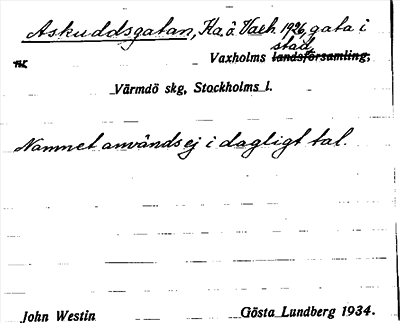 Askuddsgatan, Ka å Vaxh 1926, gata i
stad
Vaxholms landsförsamling,
Värmdö skg, Stockholms l.
Namnet används ej i dagligt tal.
John Westin Gösta Lundberg 1934.